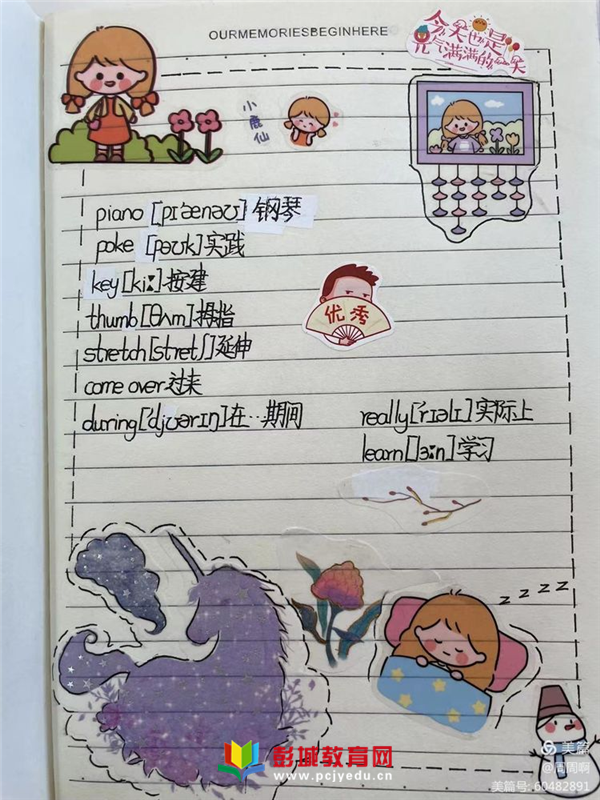 OURMEMORIESBEGINHERE
今天也是
元气满满的一天
小鹿仙
piano [pɪˈænəʊ] 钢琴
poke [pəʊk] 实践
key [kiː] 按建
thumb [θʌm] 拇指
优秀
stretch [stretʃ] 延伸
come over 过来
during [ˈdjʊərɪŋ] 在…期间 really [ˈrɪəlɪ] 实际上
learn [lɜːn] 学习
z z z z
彭城教育网
www.pcjyedu.cn
美篇
@周周啊
美篇号: 60482891